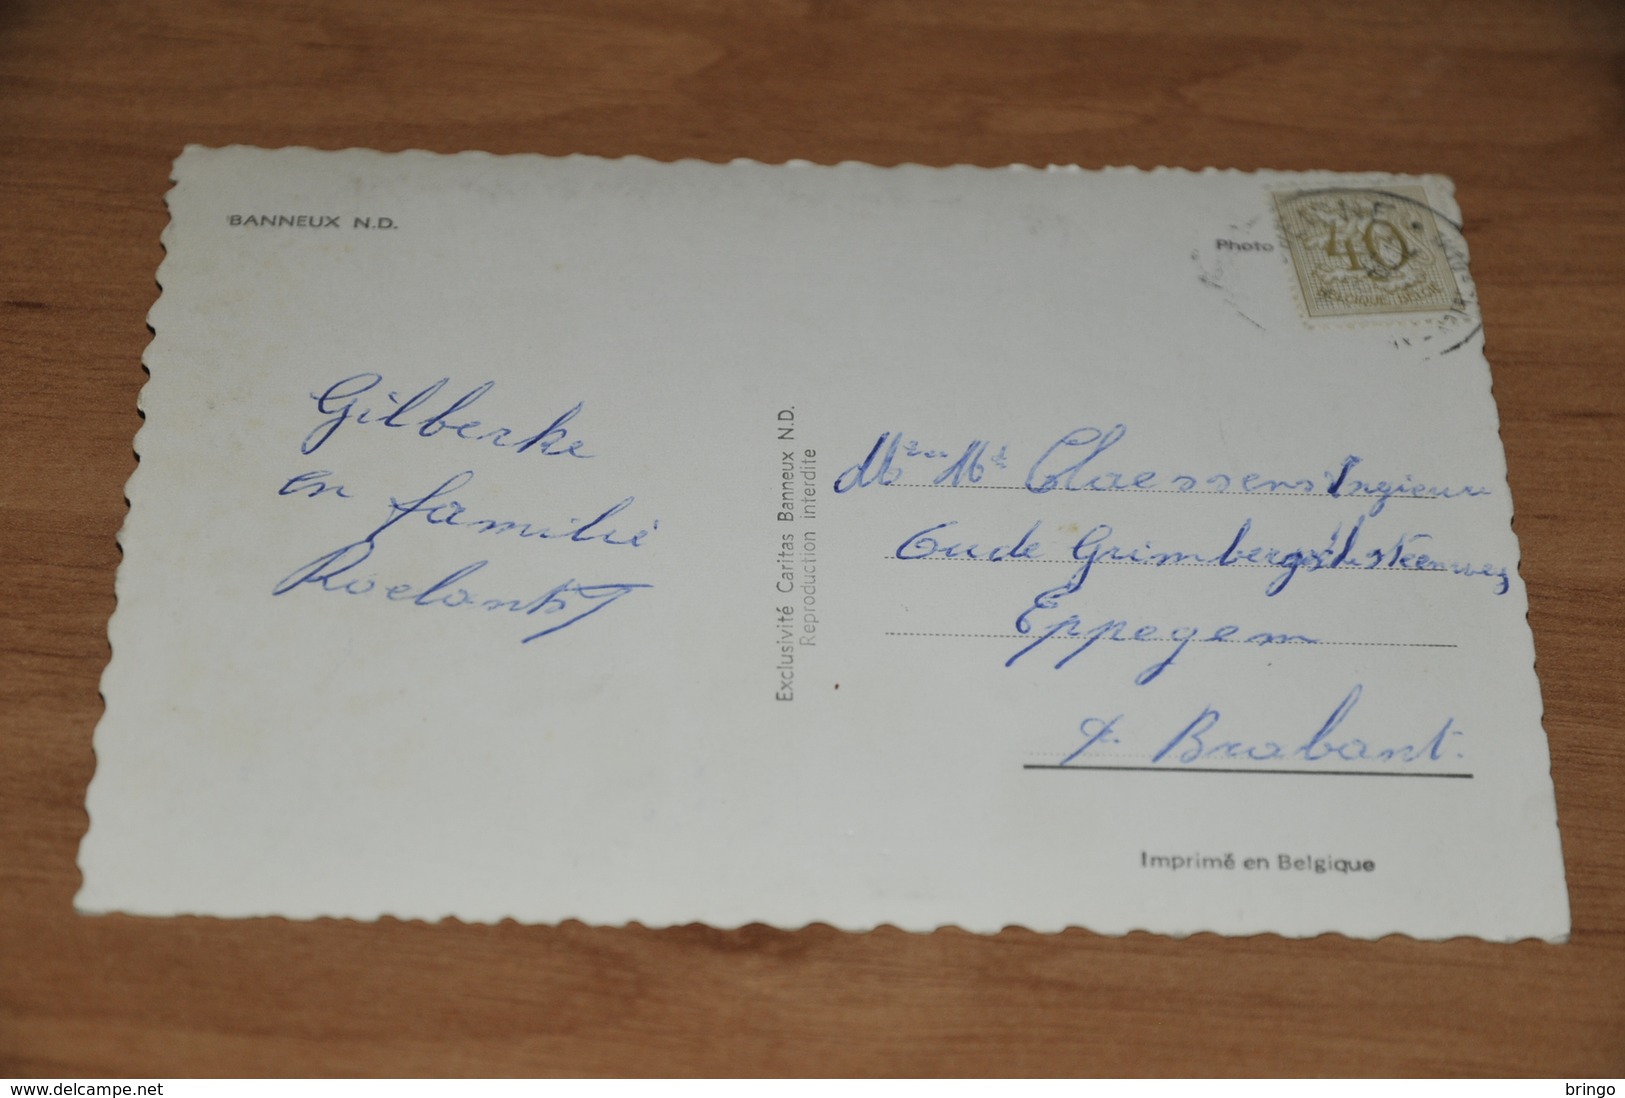 BANNEUX N.D.
Photo
40
BELGIQUE-BELGIE
Gilberke
en familie
Roelants
Exclusivité Caritas Banneux N.D.
Reproduction interdite
Mr en Md Claessens Ingieur
Oude Grimbergschesteenweg
Eppegem
Brabant.
Imprimé en Belgique
www.delcampe.net
bringo